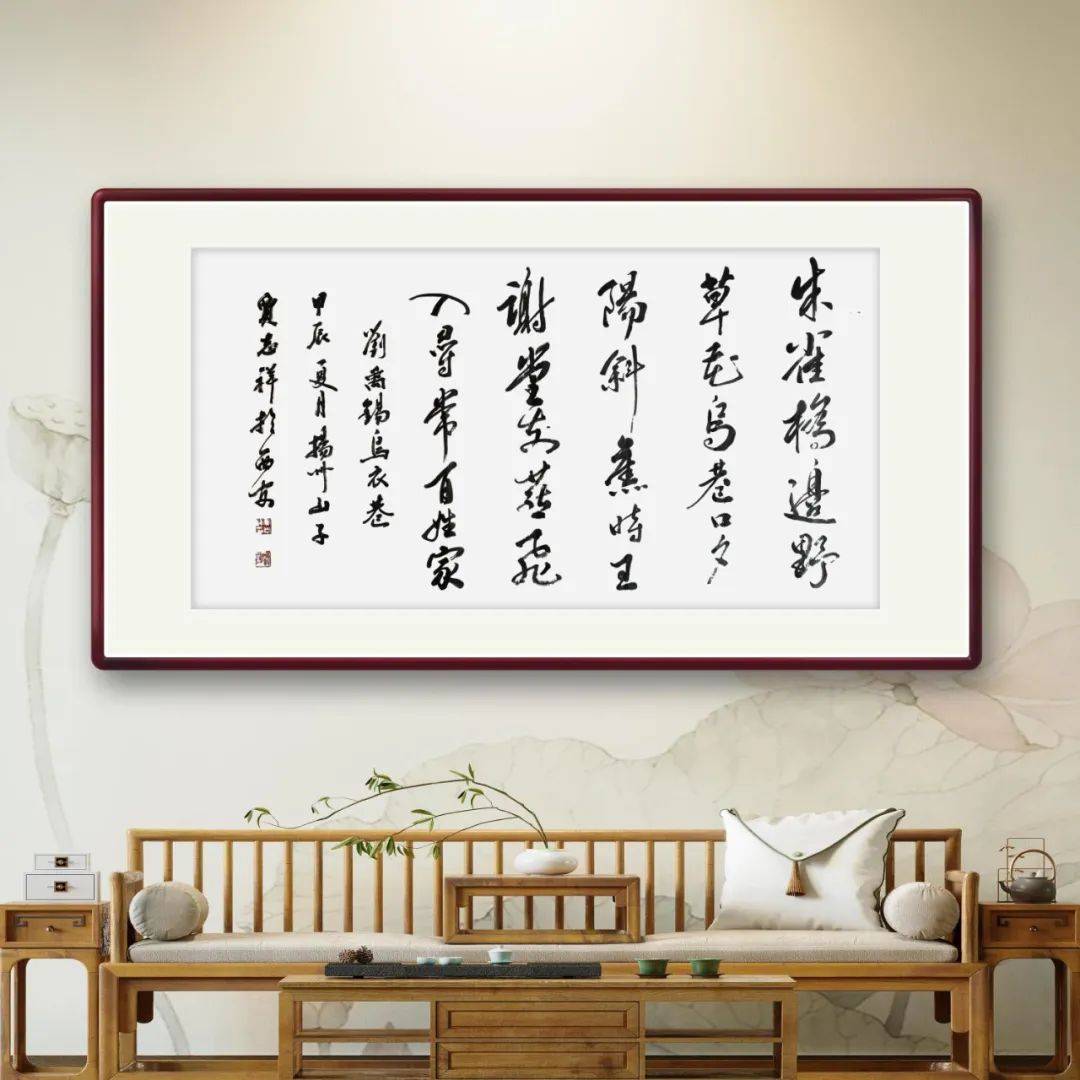 朱雀橋邊野
草花烏巷口夕
陽斜舊時王
謝堂前燕飛
入尋常百姓家
劉禹錫烏衣巷
甲辰夏月州山子
志祥於西安